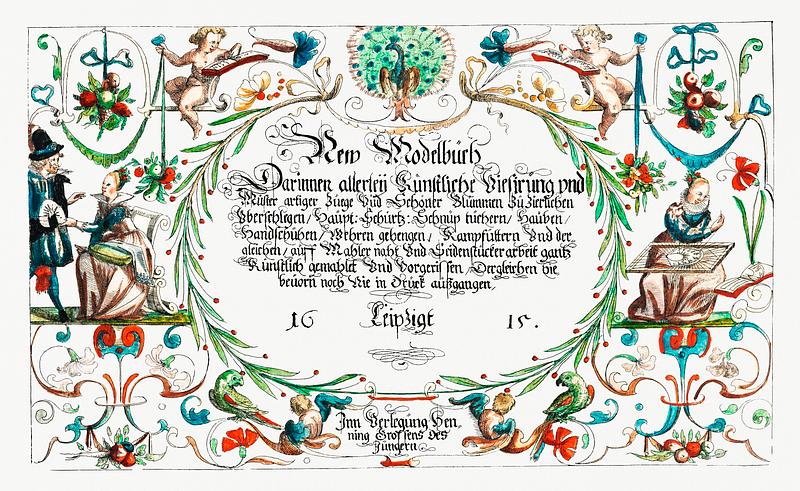 New Modelbuch
Darinnen allerley Künstliche Viesirung vnd
Müster artiger Züge Vnd Schöner Blummen Zu Zierlichen
Vberschlegen/ Haupt: Schürtz: Schnüp tüchern/ Hauben/
Handschühen/ Wehren gehengen/ Kampfüttern Vnd der
gleichen/ auff Mahler naht Vnd Seidenstücker arbeit gantz
Künstlich gemahlet Vnd Vorgerissen, Dergleichen hie
beuorn noch Nie in Drück außgangen,
16 Leipzigt 15.
Jnn Verlegung Hen,
ning Grossens Des
Jüngern